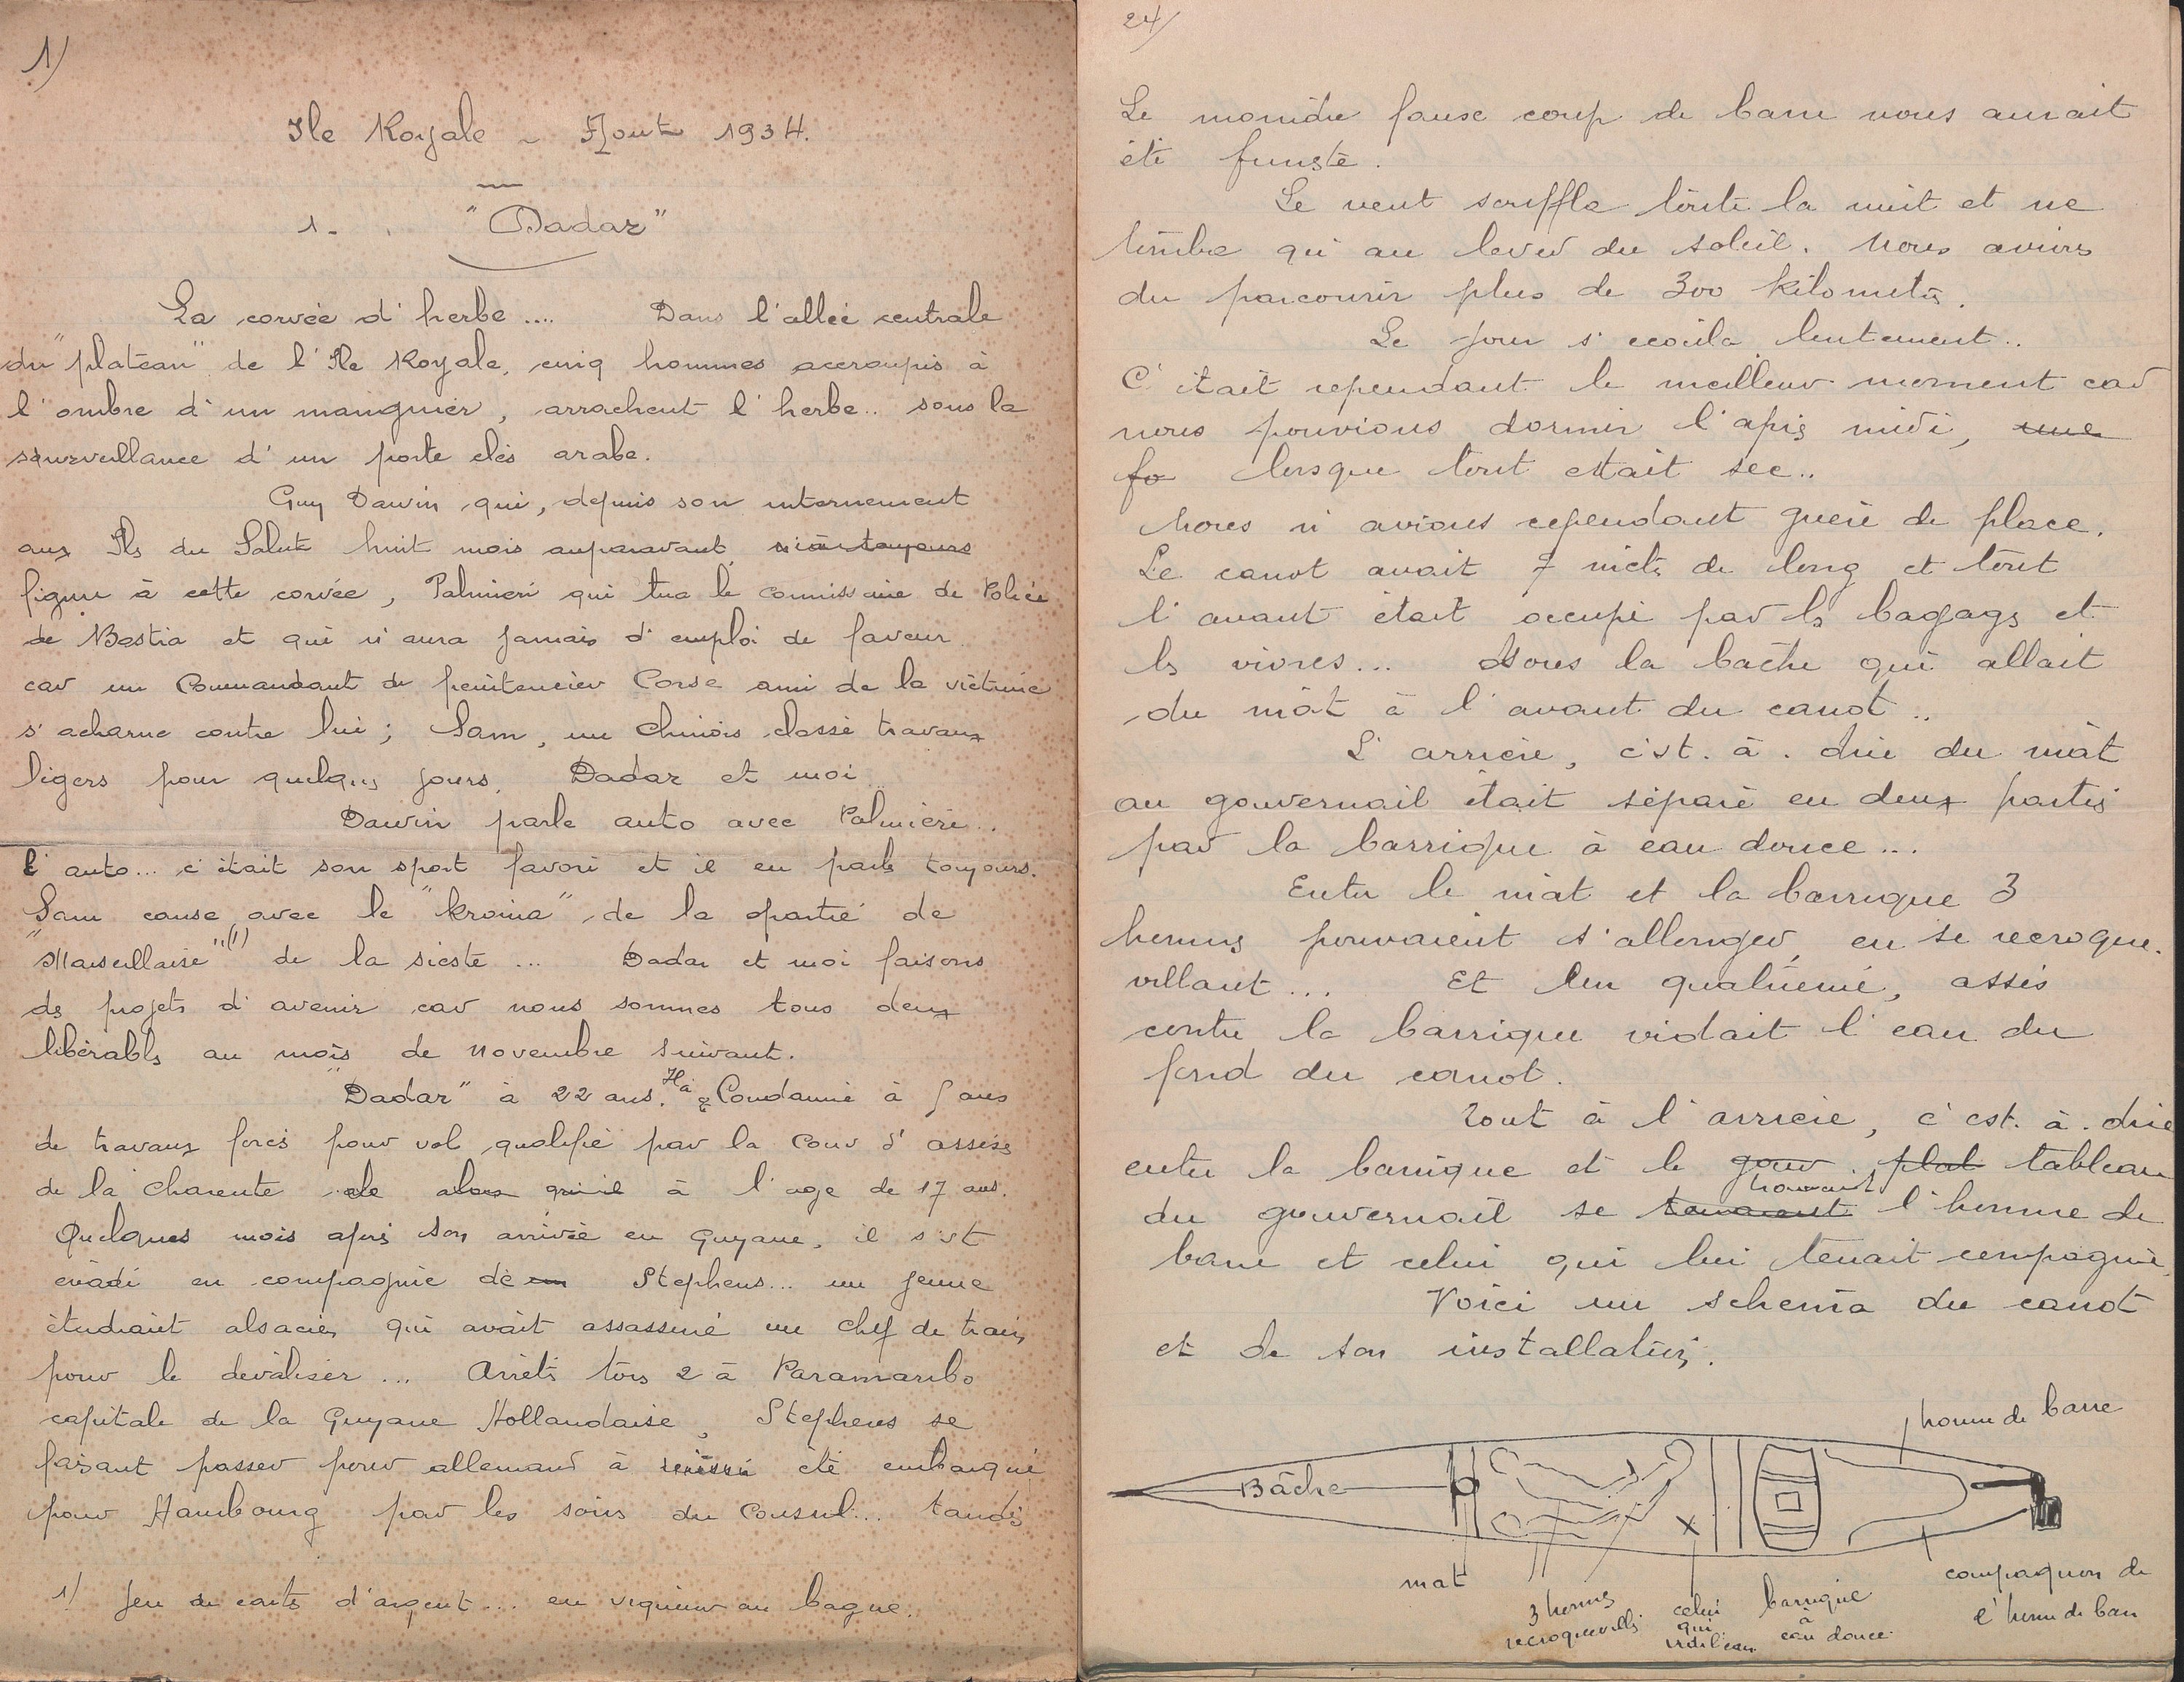 1)
Ile Royale - Aout 1934.
1. "Dadar"
La corvée d'herbe .... Dans l'allée centrale
du "plateau" de l'Ile Royale, cinq hommes accroupis à
l'ombre d'un manguier, arrachent l'herbe.. sous la
surveillance d'un porte clés arabe.
Guy Dawin qui, depuis son internement
aux Iles du Salut huit mois auparavant
figure à cette corvée, Palmieri qui tua le Commissaire de Police
de Bastia et qui n'aura jamais d'emploi de faveur
car un Commandant de penitencier Corse ami de la victime
s'acharne contre lui ; Sam, un Chinois classé travaux
légers pour quelques jours, Dadar et moi
Dawin parle auto avec Palmieri..
l'auto... c'était son sport favori et il en parle toujours.
Sam cause avec le "kroma" de la partie de
"Marseillaise"(1) de la sieste ... Dadar et moi faisons
des projets d'avenir car nous sommes tous deux
libérables au mois de novembre suivant.
"Dadar" à 22 ans. Condamné à 5 ans
de travaux forcés pour vol qualifié par la Cour d'assises
de la Charente alors qu'il à l'age de 17 ans.
Quelques mois après son arrivée en Guyane, il s'est
évadé en compagnie de Stephens... un jeune
étudiant alsacien qui avait assassiné un chef de train
pour le dévaliser ... Arrêtés tous 2 à Paramaribo
capitale de la Guyane Hollandaise, Stephens se
faisant passer pour allemand à été embarqué
pour Hambourg par les soins du Consul... tandis
1) Jeu de cartes d'argent ... en vigueur au bagne.
24/
Le moindre fausse coup de barre nous aurait
été funeste.
Le vent souffla toute la nuit et ne
tomba qu'au lever du soleil. Nous avions
du parcourir plus de 300 kilometres.
Le jour s'ecoula lentement..
C'était cependant le meilleur moment car
nous pouvions dormir l'après midi, une
fo lorsque tout était sec..
Nous n'avions cependant guère de place.
Le canot avait 7 mets de long et tout
l'avant était occupé par les bagages et
les vivres... Sous la bâche qui allait
du mât à l'avant du canot..
L'arrière, c'est. à. dire du mât
au gouvernail était séparé en deux parties
par la barrique à eau douce...
Entre le mat et la barrique 3
hommes pouvaient s'allonger, en se recroque.
villant ... Et un quatrième, assis
contre la barrique vidait l'eau du
fond du canot.
Tout à l'arrière, c'est. à. dire
entre la barrique et le gouv. plat tableau
trouvaient
du gouvernail se tenaient l'homme de
barre et celui qui lui tenait compagnie.
Voici un schema du canot
et de son installation.
homme de barre
Bâche
mat
3 hommes
recroquevillés
celui
qui
vide l'eau
barrique
à
eau douce
compagnon de
l'homme de barre